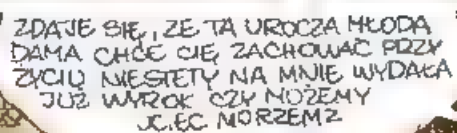 ZDAJE SIĘ, ŻE TA UROCZA MŁODA
DAMA CHCE CIĘ ZACHOWAĆ PRZY
ŻYCIU NIESTETY NA MNIE WYDAŁA
JUŻ WYROK CZY MOŻEMY
MORZEM?